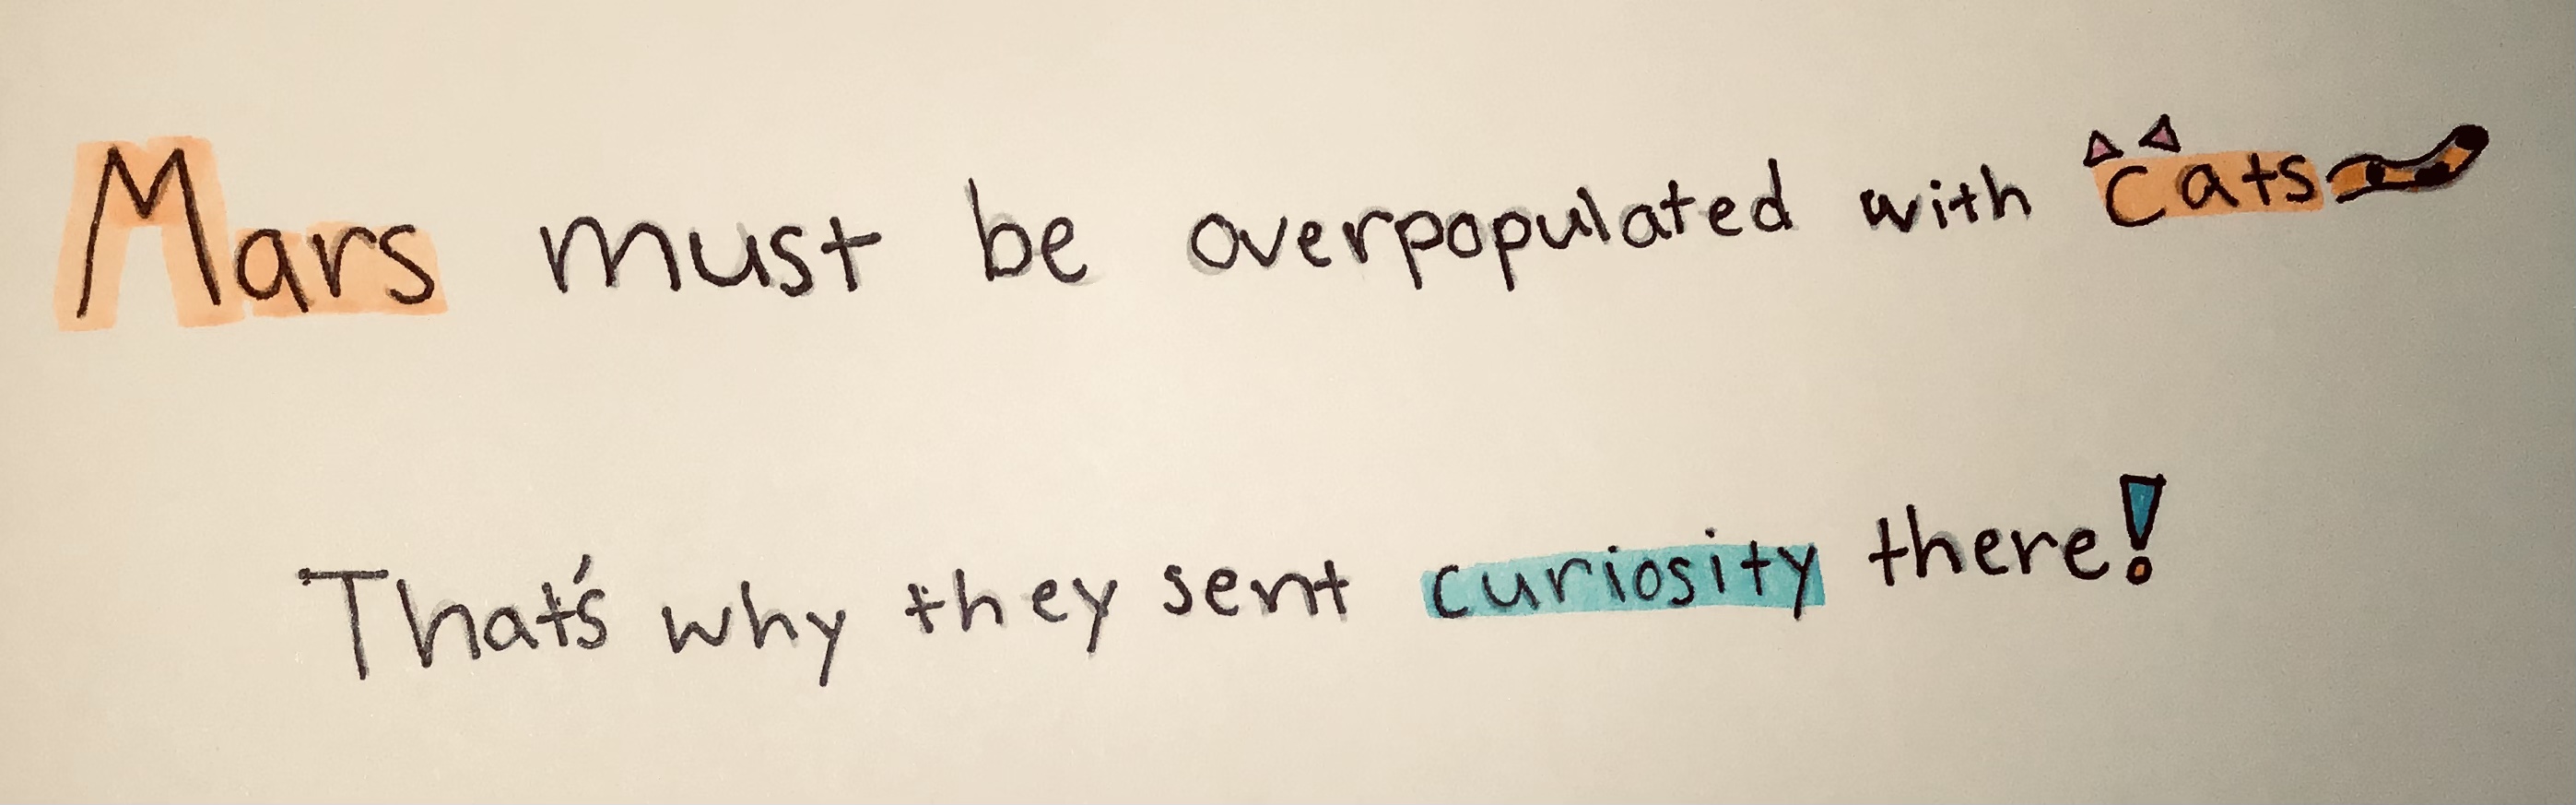 Mars must be overpopulated with cats
That's why they sent curiosity there!